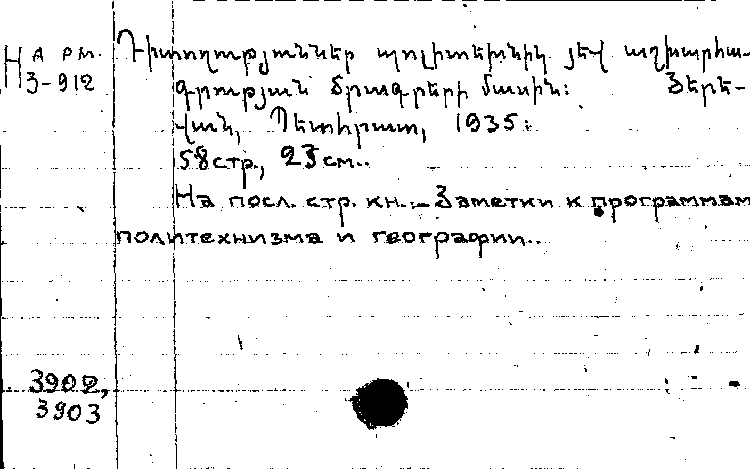 Н А РМ.
3-912
Դիտողություններ պոլիտեխնիկ յեվ աշխարհա-
գրության ծրագրերի մասին: Յերե-
վան, Պետհրատ, 1935:
58стр., 23см..
На посл. стр. кн.:– Заметки к программам
политехнизма и географии..
3902,
3903